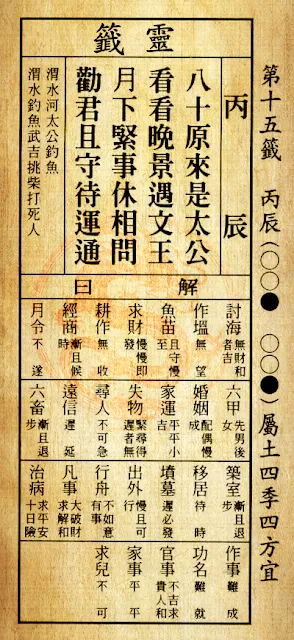 第十五籤 丙辰(○○● ○○●)屬土四季四方宜
靈籤
丙辰
八十原來是太公
看看晚景遇文王
月下緊事休相問
勸君且守待運通
渭水河太公釣魚
渭水釣魚武吉挑柴打死人
解曰
討海 無財和者吉
作塭 無望
魚苗 且守慢至
求財 慢慢即發
耕作 無收
經商 漸且候時
月令 不遂
六甲 先男後女
婚姻 配偶慢成
家運 平平小吉
失物 緊尋得遲者無
尋人 不可急
遠信 遲延
六畜 漸且退步
築室 漸且退步
移居 待時
墳墓 遲必發
出外 慢且可行
行舟 不如意有事
凡事 大破財求解和
治病 求平安十日險
作事 難成
功名 難就
官事 不吉求貴人和
家事 平平
求兒 不可